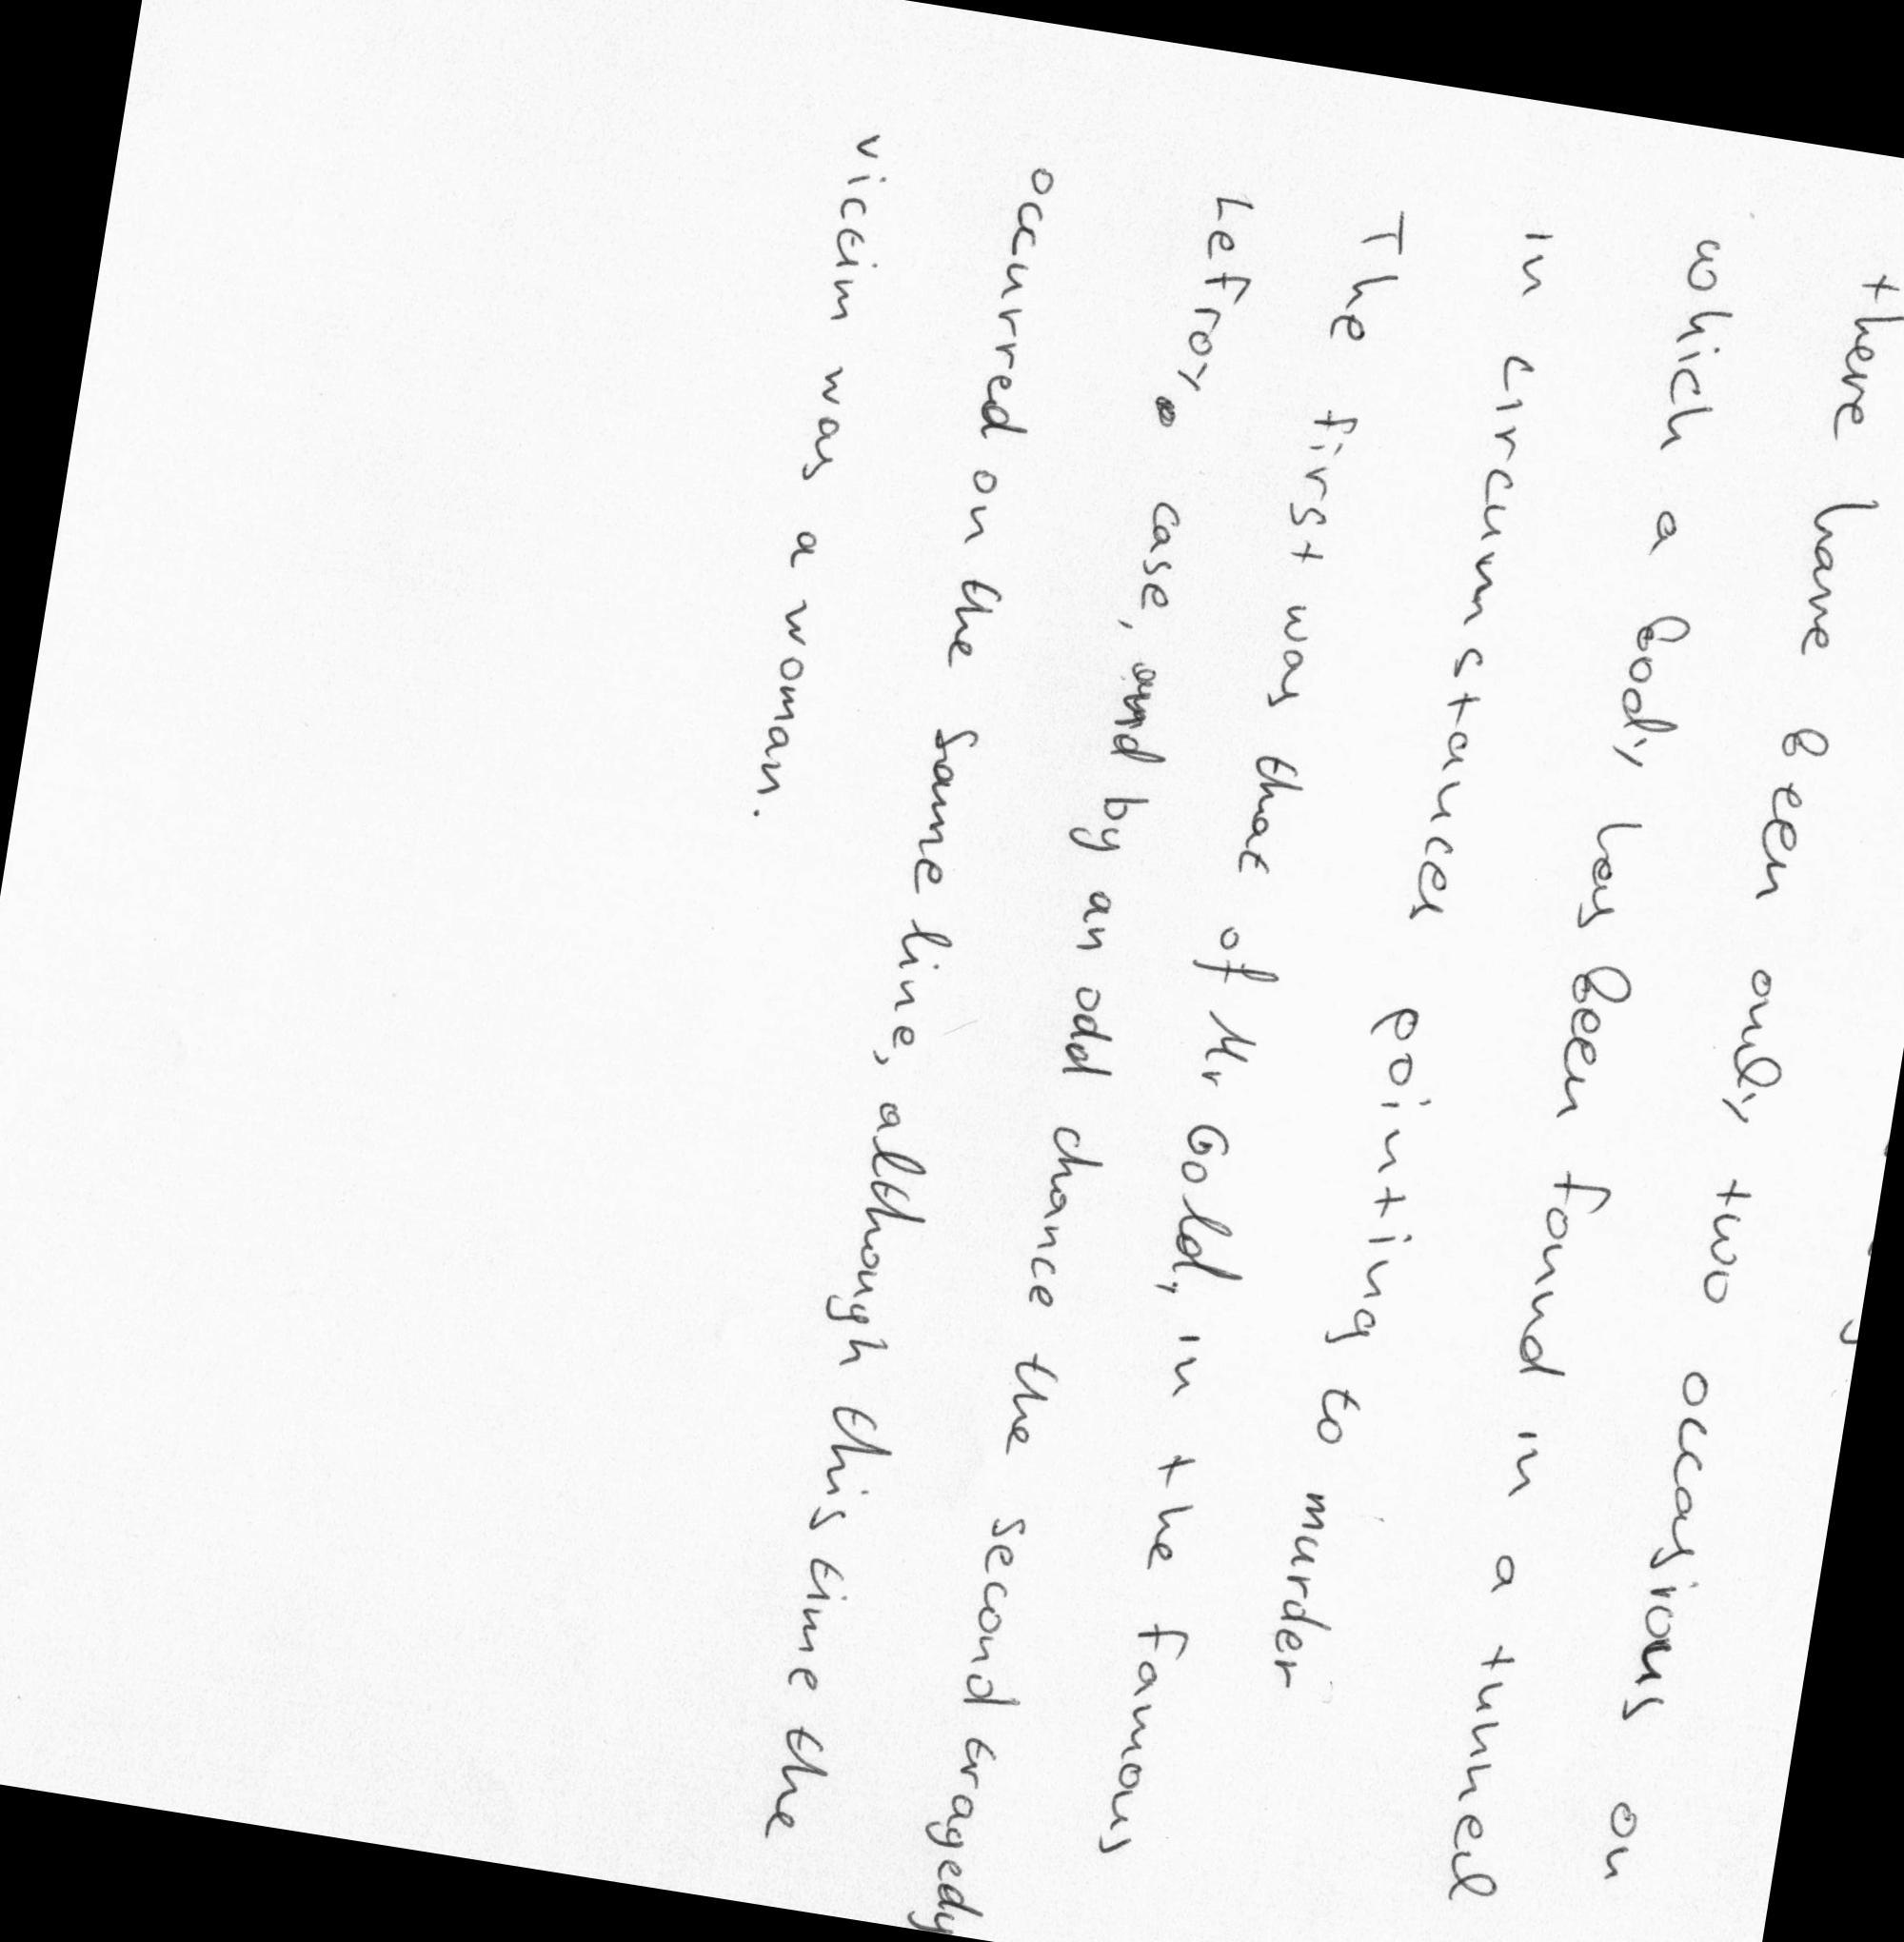 there have been only two occasions on
which a body has been found in a tunnel
in circumstances pointing to murder
The first was that of Mr Gold, in the famous
Lefroy case, and by an odd chance the second tragedy
occurred on the same line, although this time the
victim was a woman.